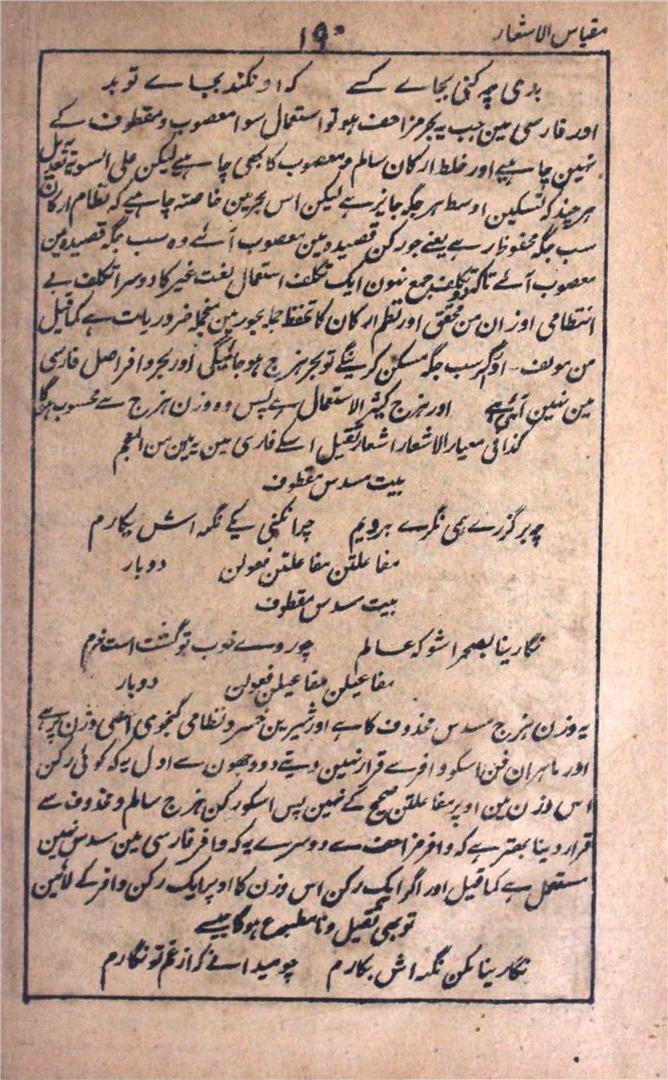 مقیاس الاشعار
۱۹۰
بدی چہ کنی بجاے کسے کہ او نکند بجاے تو بد
اور فارسی مین جب یہ بحر مزاحف ہو تو استعمال سوا معصوب و مقطوف کے
نہین چاہیے اور خلط ارکان سالم و معصوب کا بھی چاہیے لیکن علی السویہ
ہر چند کہ تسکین اوسط ہر جگہ جایز ہے لیکن اس بحر مین خاصتہ چاہیے کہ نظام ارکان
سب جگہ محفوظ رہے یعنے جو رکن قصیدہ مین معصوب آئے وہ سب جگہ قصیدہ مین
معصوب آئے تاکہ دو تکلف جمع نہون ایک تکلف استعمال لغت غیر کا دوسرا تکلف بے
انتظامی اوزان من محقق اور نظم ارکان کا تحفظ جملہ بحور مین منجملہ ضروریات ہے کما قیل
من مولف۔ اور اگر سب جگہ مسکن کرینگے تو بحر ہزج ہو جائیگی اور بحر وافر اصل فارسی
مین نہین آئی ہے اور ہزج کثیر الاستعمال ہے پس وہ وزن ہزج سے محسوب ہوگا
کذا فی معیار الاشعار اشعار ثقیل اسکے فارسی مین یہ ہین من المعجم
بیت مسدس مقطوف
چو برگزرے ہمی نگرے برویم چرا نکنی یکے نگہ اش بکارم
مفاعلتن مفاعلتن فعولن دوبار
بیت مسدس مقطوف
نگارینا بصحرا شو کہ عالم چو روے خوب تو گشت است خرم
مفاعیلن مفاعیلن فعولن دوبار
یہ وزن ہزج مسدس محذوف کا ہے اور شیرین خسرو نظامی گنجوی اسی وزن پر ہے
اور ماہران فن اسکو وافر سے قرار نہین دیتے دو وجھون سے اول یہ کہ کوئی رکن
اس وزن مین اوپر مفاعلتن صحیح کے نہین پس اسکو رکن ہزج سالم و محذوف سے
قرار دینا بہتر ہے کہ وافر مزاحف سے دوسرے یہ کہ وافر فارسی مین مسدس نہین
مستعمل ہے کما قیل اور اگر ایک رکن اس وزن کا اوپر ایک رکن وافر کے لائین
تو بھی ثقیل و نامطبوع ہوگا جیسے
نگارینا مکن نگہ اش بکارم چو میدانے کہ از غم تو نگارم